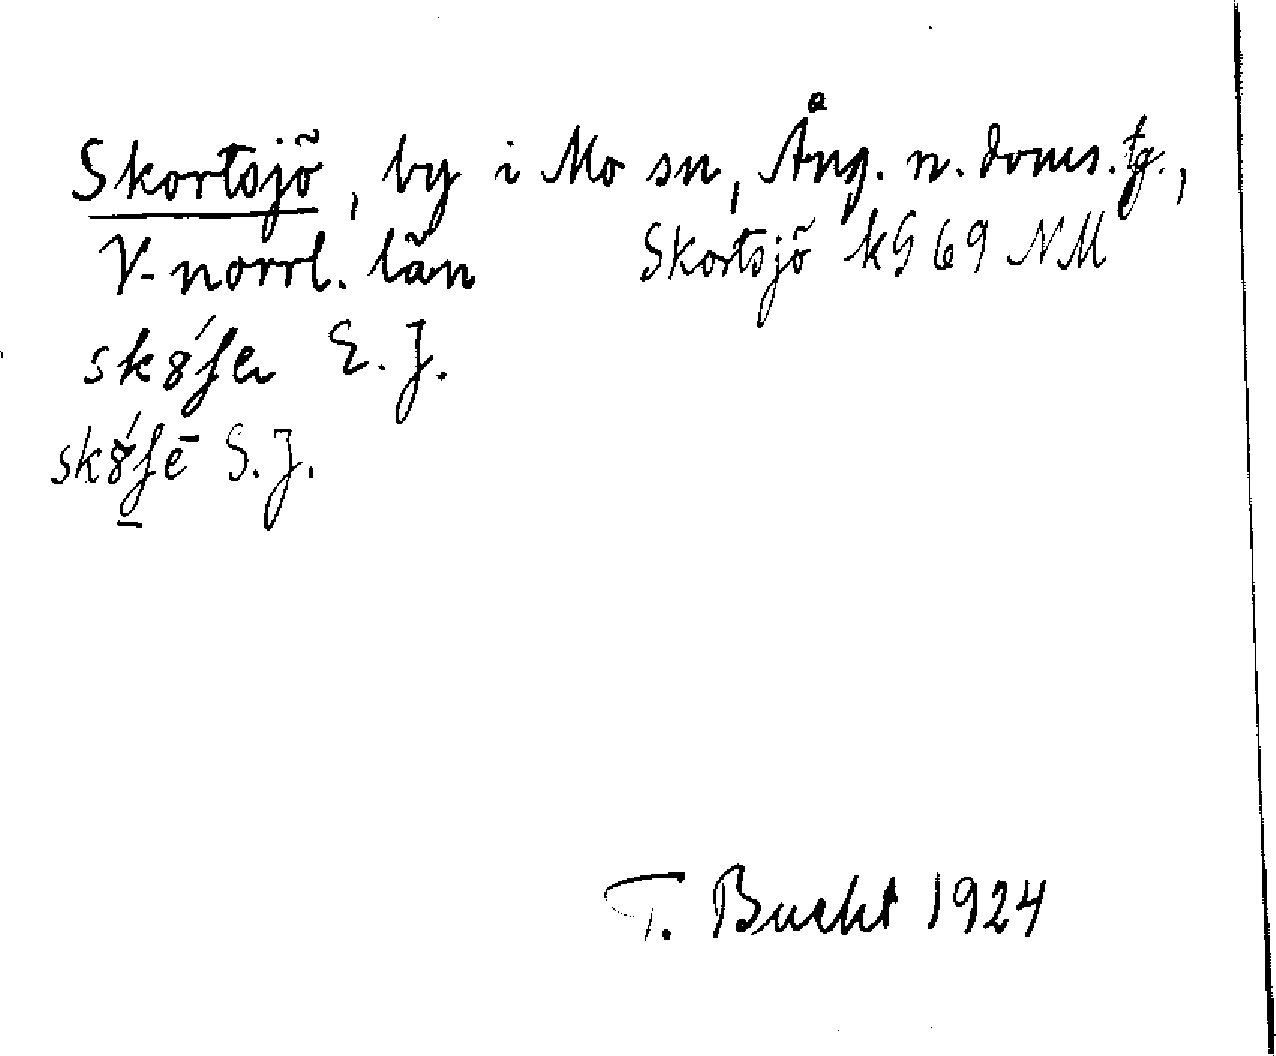 Skortsjö, by i Mo sn, Ång. n. doms. tg.,
V-norrl. län Skortsjö kG 69 NM
E. J.
S. J.
T. Bucht 1924